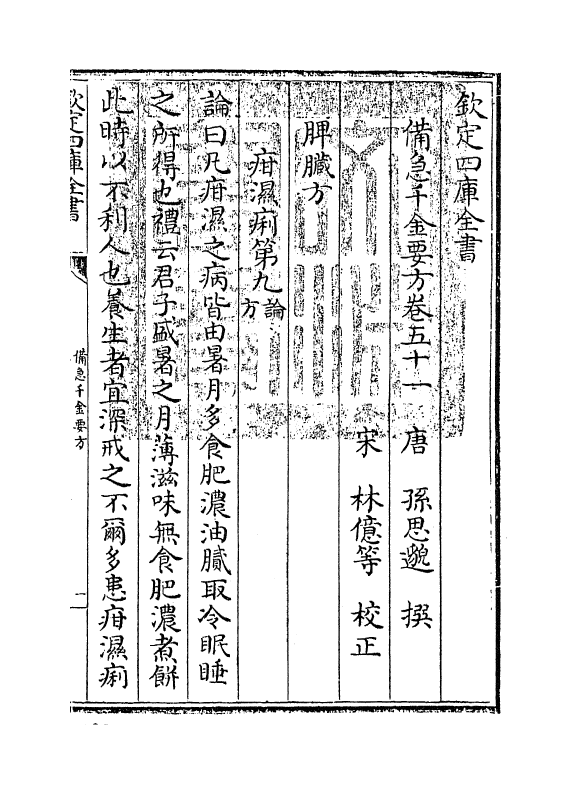 欽定四庫全書
備急千金要方卷五十一 唐 孫思邈 撰
宋 林億等 校正
脾臟方
疳濕痢第九論方
論曰凡疳濕之病皆由暑月多食肥濃油膩取冷眠睡
之所得也禮云君子盛暑之月薄滋味無食肥濃煮餅
此時以不利人也養生者宜深戒之不爾多患疳濕痢
欽定四庫全書
備急千金要方